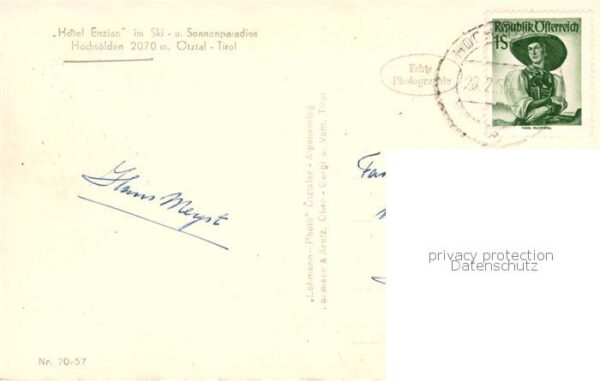 „Hotel Enzian" im Ski - u. Sonnenparadies
Hochsölden 2070 m, Ötztal - Tirol
Echte
Photographie
Republik Österreich
1S
Hans Meyst
„Lohmann-Photo" Ötztaler - Alpenverlag
Lohmann & Aretz, Ober - Gurgl u. Vent, Tirol
privacy protection
Datenschutz
Nr. 70/57